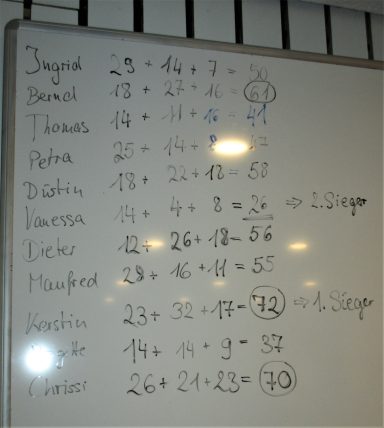 Ingrid 29 + 14 + 7 = 50
Bernd 18 + 27 + 16 = 61
Thomas 14 + 11 + 16 = 41
Petra 25 + 14 +
Dustin 18 + 22 + 18 = 58
Vanessa 14 + 4 + 8 = 26 ⇒ 2. Sieger
Dieter 12 + 26 + 18 = 56
Manfred 28 + 16 + 11 = 55
Kerstin 23 + 32 + 17 = 72 ⇒ 1. Sieger
14 + 14 + 9 = 37
Chrissi 26 + 21 + 23 = 70